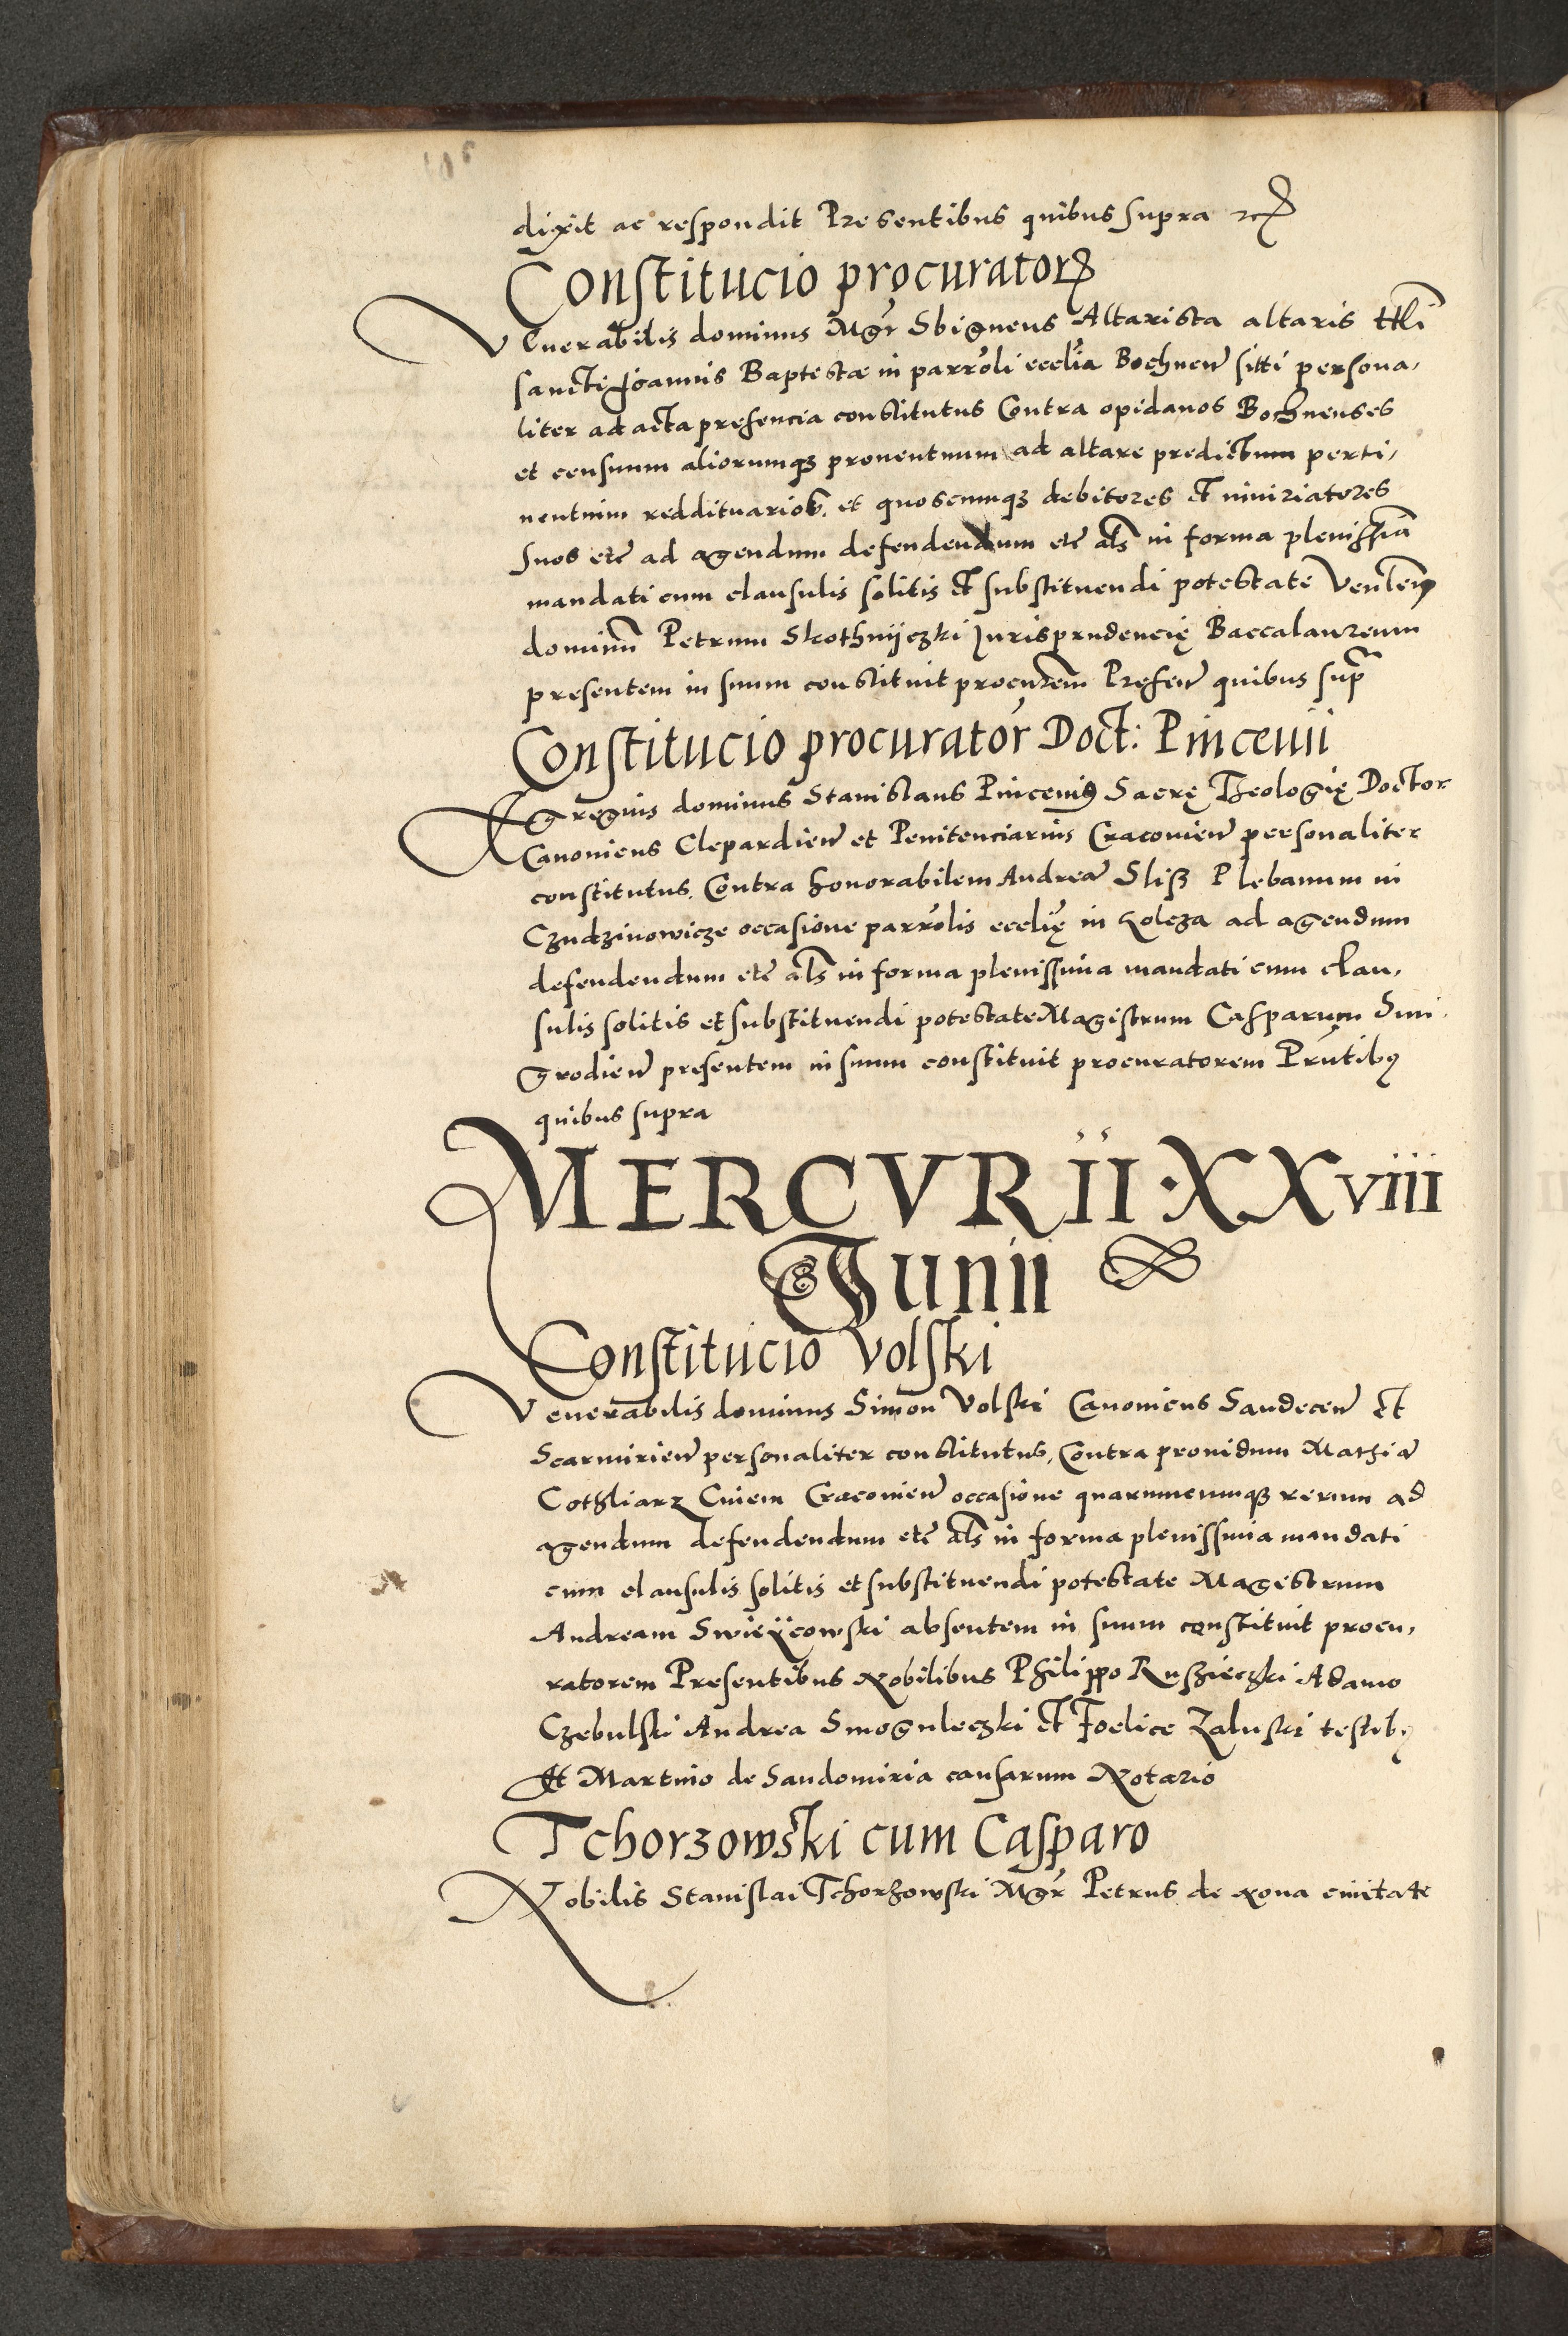 dixit ac respondit Presentibus quibus supra etc
Constitucio procurator
Venerabilis dominus Mgr Sbigneus Altarista altaris ttli
sancti Joannis Baptestæ in parroli ecclia Bochnen sitti persona,
liter ad acta presencia constitutus Contra opidanos Bochnenses
et censuum aliorumqz prouentuum ad altare predictum perti,
nentium reddituarios. et quoscumqz debitores et iniuriatores
suos etc ad agendum defendendum etc als in forma plenissia
mandati cum clausulis solitis et substituendi potestate Venlem
dominu Petrum Skothnijczki Jurisprudencię Baccalaureum
presentem in suum constituit procurem Presen quibus sup
Constitucio procurator Doct: Pinceuii
Egregius dominus Stanislaus Pinceui9 Sacrę Theologię Doctor
Canonicus Clepardien et Penitenciarius Cracouien personaliter
constitutus. Contra honorabilem Andrea Slisz Plebanum in
Czudzinowicze occasione parrolis ecclię in Kolcza ad agendum
defendendum etc als in forma plenissima mandati cum clau,
sulis solitis et substituendi potestate Magistrum Casparum Sui,
grodien presentem in suum constituit procuratorem Prntib9
quibus supra
MERCVRII · XXviii
Junii
Constitucio Volski
Venerabilis dominus Simon Volski Canonicus Sandecen et
Scarmirien personaliter constitutus, Contra prouidum Mathia
Cothliarz Ciuem Cracouien occasione quarumcumqz rerum ad
agendum defendendum etc als in forma plenissima mandati
cum clausulis solitis et substituendi potestate Magistrum
Andream Swieÿcowski absentem in suum constituit procu,
ratorem Presentibus Nobilibus Philippo Ruszieczki Adamo
Czebulski Andrea Smoguleczki et Foelice Zaluski testib9
Et Martino de Sandomiria causarum Notario
Tchorzowski cum Casparo
Nobilis Stanislai Tchorzowski Mgr Petrus de Noua ciuitate